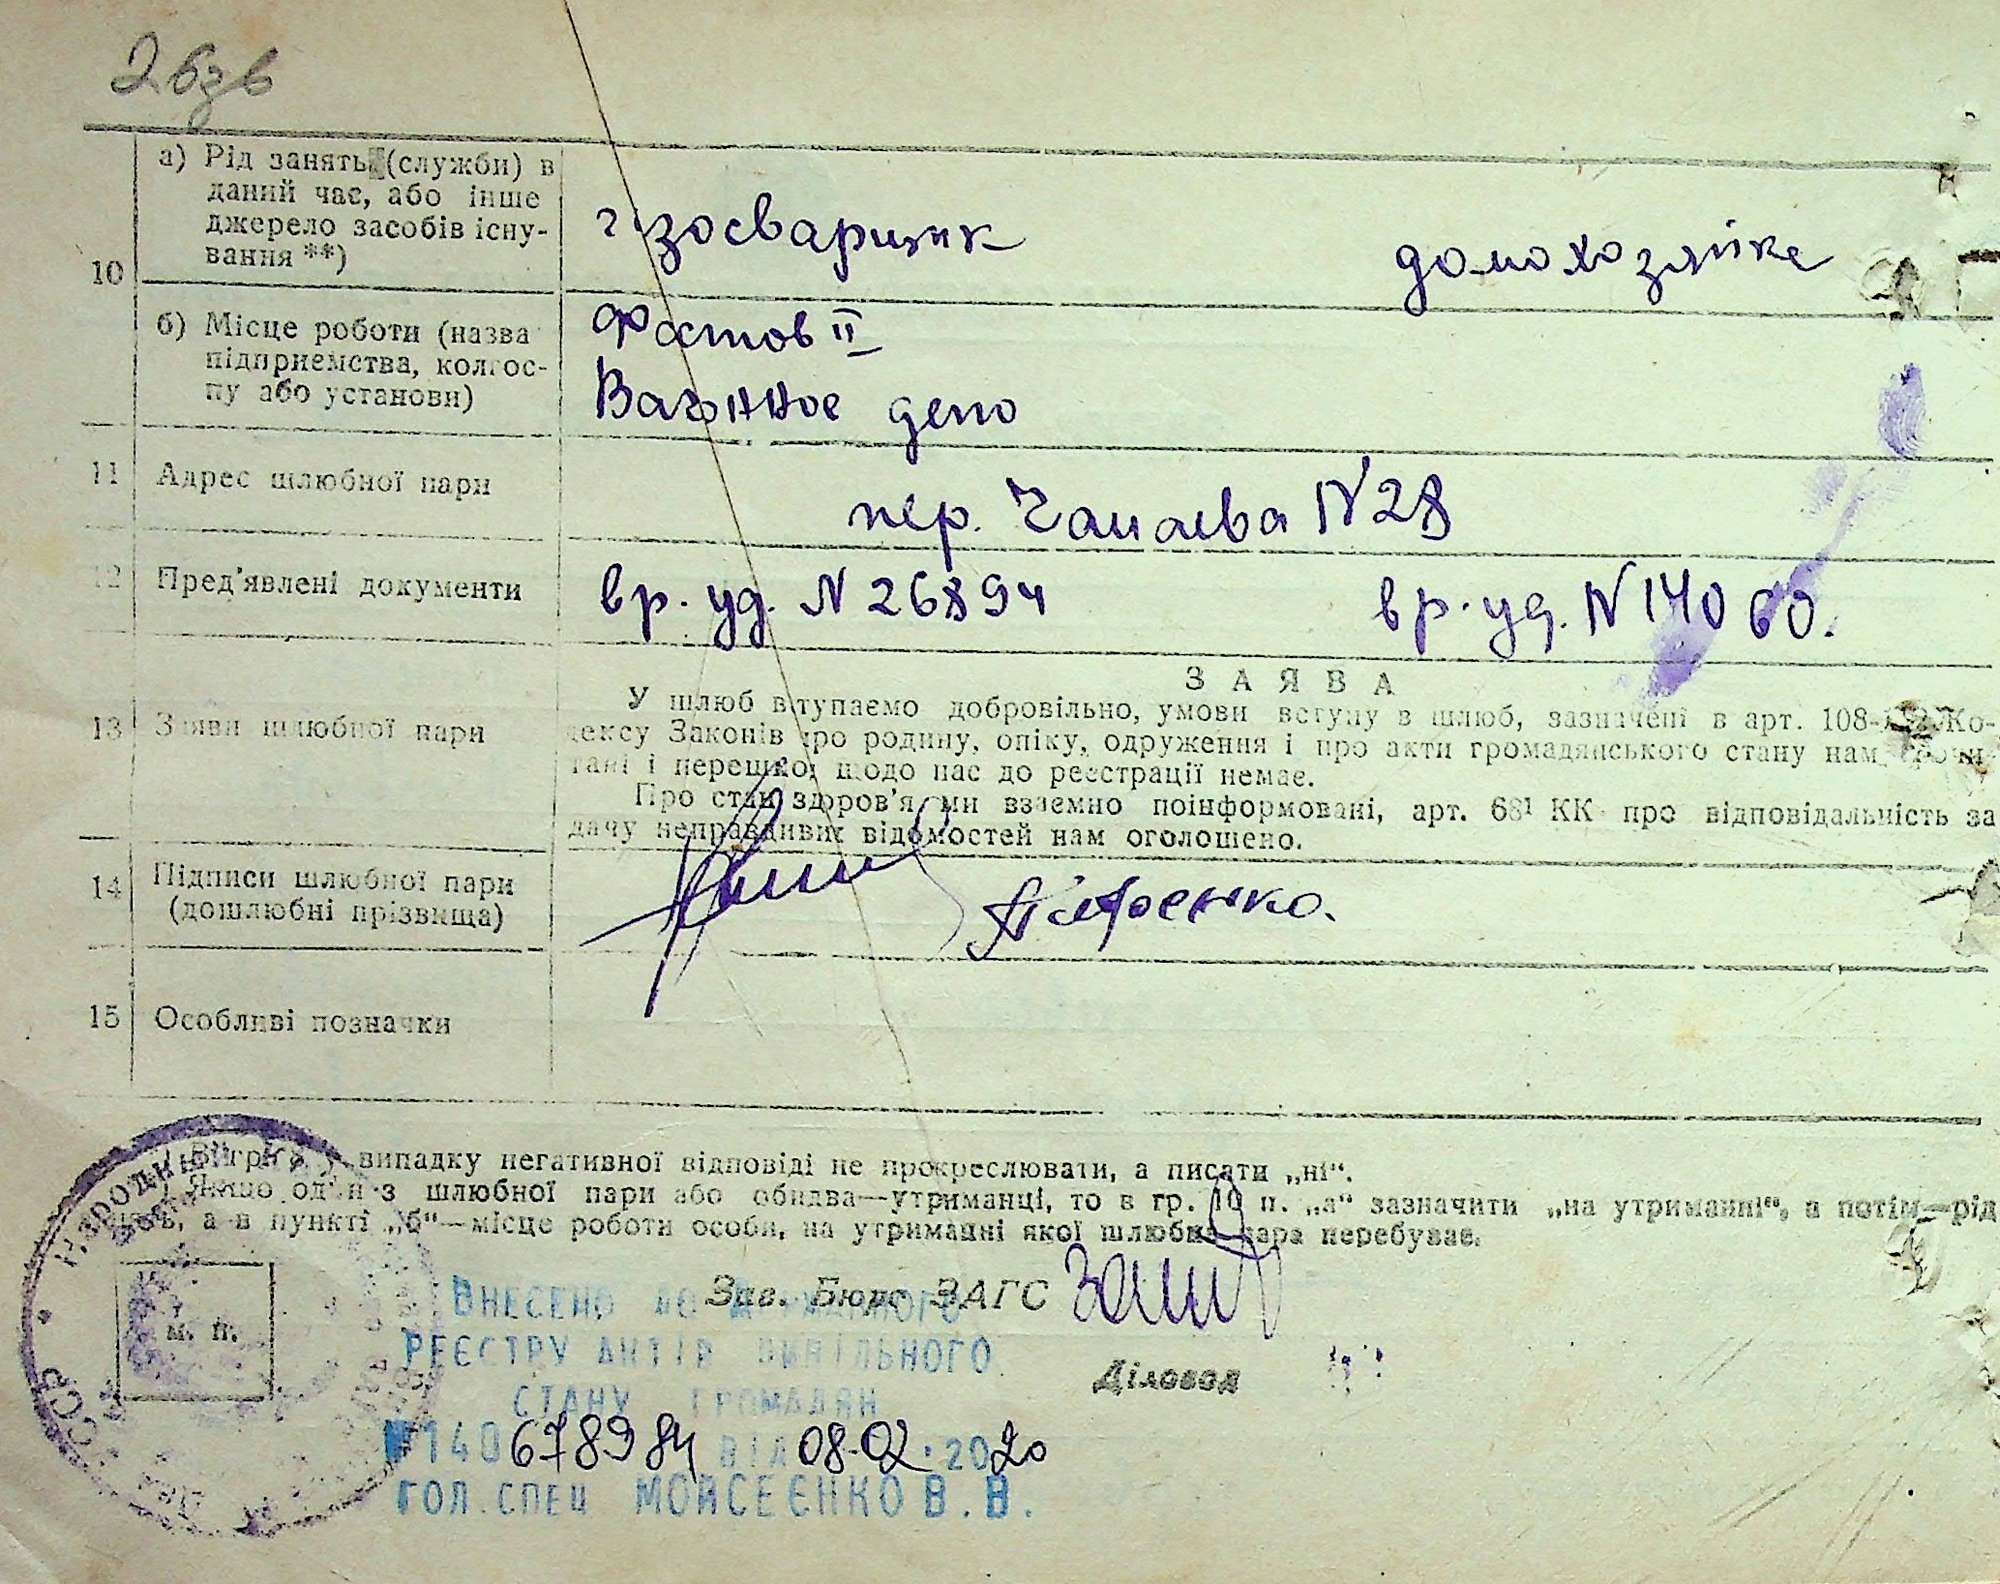 10
а) Рід занять (служби) в
даний час, або інше
джерело засобів існу-
вання **)
газосварщик
домохозяйка
б) Місце роботи (назва
підприємства, колгос-
пу або установи)
Фастов II
Вагонное депо
11
Адрес шлюбної пари
пер. Чапаева N 28
12
Пред'явлені документи
вр. уд. N 26894
вр. уд. N 14060.
13
Заяви шлюбної пари
ЗАЯВА
У шлюб вступаємо добровільно, умови вступу в шлюб, зазначені в арт. 108- Ко-
дексу Законів про родину, опіку, одруження і про акти громадянського стану нам
і перешкод щодо нас до реєстрації немає.
Про стан здоров'я ми взаємно поінформовані, арт. 68¹ КК про відповідальність за
дачу неправдивих відомостей нам оголошено.
14
Підписи шлюбної пари
(дошлюбні прізвища)
15
Особливі позначки
у випадку негативної відповіді не прокреслювати, а писати „ні“.
Якщо один з шлюбної пари або обидва—утриманці, то в гр. 10 п. „а“ зазначити „на утриманні“, а потім—рід
а в пункті „б“—місце роботи особи, на утриманні якої шлюбна пара перебуває.
м. п.
Зав. Бюро ЗАГС
Діловод
ВНЕСЕНО ДО ДЕРЖАВНОГО
РЕЄСТРУ АКТІВ ЦИВІЛЬНОГО
СТАНУ ГРОМАДЯН
№ 140678984 ВІД 08.02.2020
ГОЛ.СПЕЦ МОЙСЕЄНКО В.В.